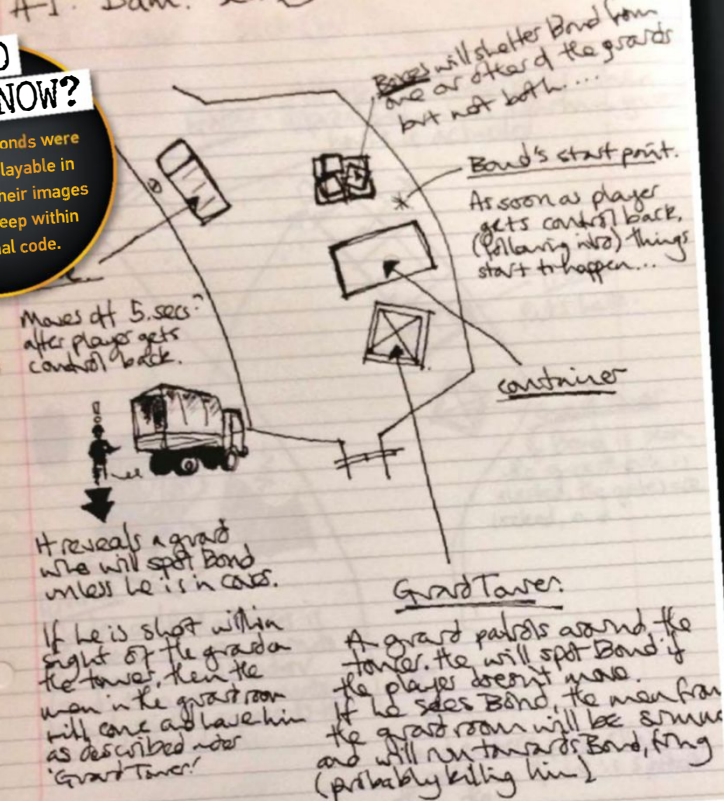 A-1. Dam.
NOW?
onds were
layable in
heir images
eep within
al code.
Boxes will shelter Bond from
one or other of the guards
but not both....
Bond's start point.
As soon as player
gets control back,
(following intro) things
start to happen...
container
Moves off 5.secs
after player gets
control back.
It reveals a guard
who will spot Bond
unless he is in cover.
If he is shot within
sight of the guard on
the tower, then the
men in the guardroom
will come and have him
as described under
'Guard Tower'
Guard Tower:
A guard patrols around the
tower. He will spot Bond if
the player doesn't move.
If he sees Bond, the men from
the guardroom will be
and will run towards Bond, firing
(probably killing him)